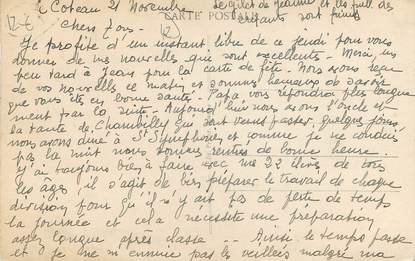 Le Coteau 21 Novembre Le gilet de Jeanne et les pull des
enfants sont finis
CARTE POSTALE
Chers Tous
Je profite d'un instant libre de ce jeudi pour vous
donner de mes nouvelles qui sont excellentes. Merci, un
peu tard à Jean pour la carte de fête. Nous avons reçu
de vos nouvelles ce matin et sommes heureux de savoir
que vous êtes en bonne santé. Papa vous répondra plus longue
ment par la suite. Aujourd'hui nous avons l'oncle et
la tante de Chambilly qui sont venus passer quelques jours
nous avons dîné à St Symphorien et comme je ne conduis
pas la nuit nous sommes rentrés de bonne heure
J'ai toujours bien à faire avec mes 22 élèves de tous
les âges, il s'agit de bien préparer le travail de chaque
division pour qu'il n'y ait pas de perte de temps
la journée et cela nécessite une préparation
assez longue après classe ... Ainsi le temps passe
et je ne m'ennuie pas les veillées malgré ma